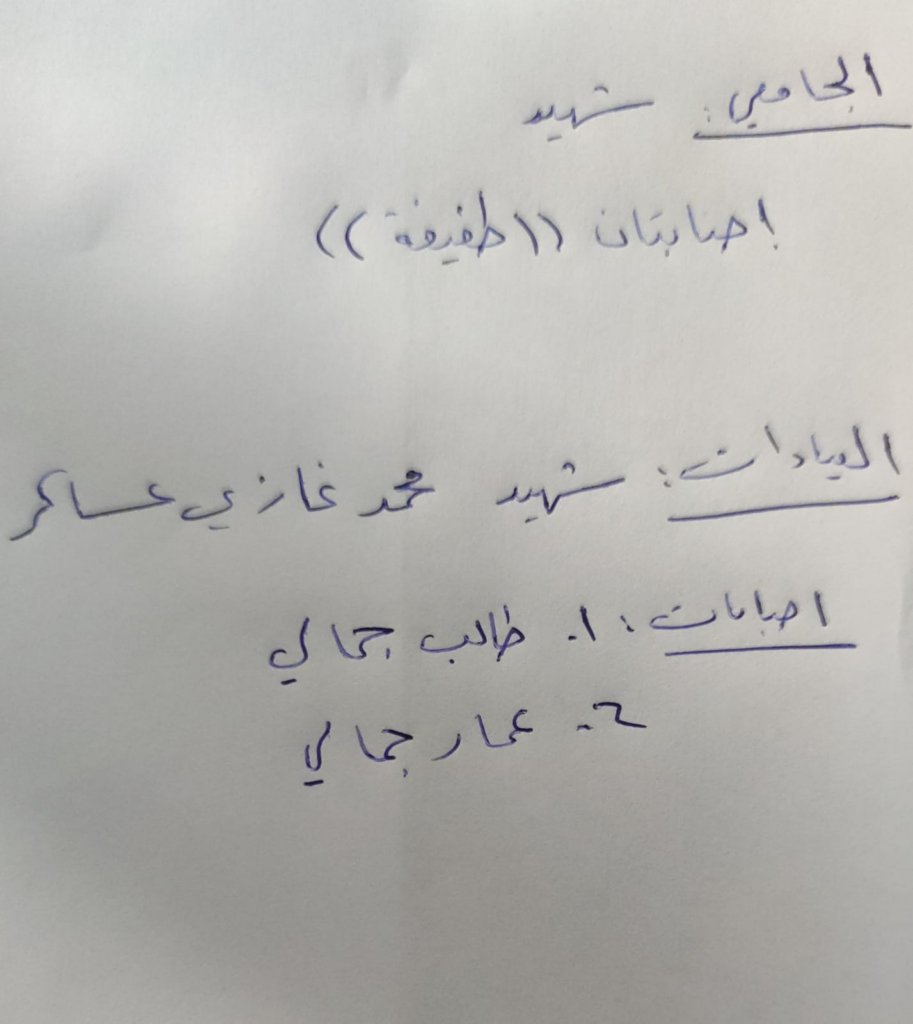 الجامعي: شهيد
إصابتان ((طفيفة))
العيادات: شهيد محمد غازي عساكر
اصابات: ١. طالب جمالي
٢. عمار جمالي